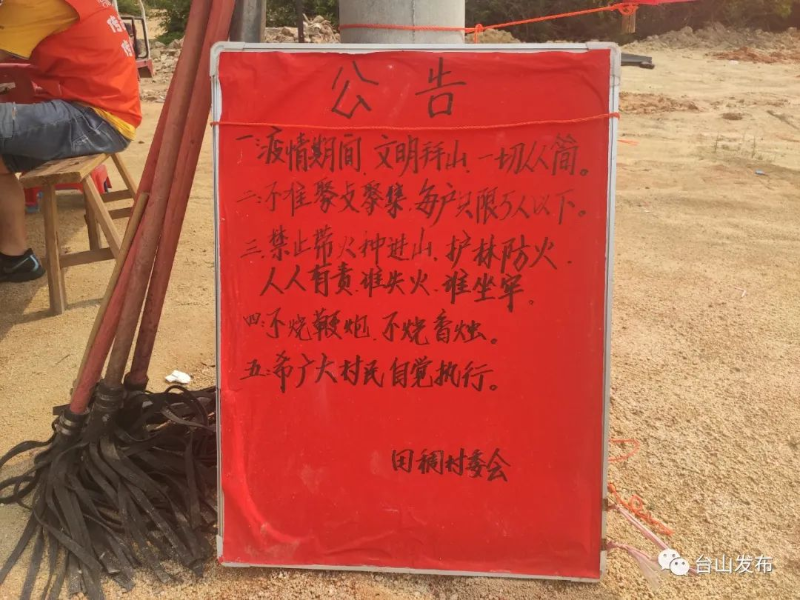 公告
一:疫情期间,文明拜山,一切从简。
二:不准聚众聚集,每户只限5人以下。
三:禁止带火种进山,护林防火,
人人有责,谁失火,谁坐牢。
四:不烧鞭炮,不烧香烛。
五:希广大村民自觉执行。
田稠村委会
台山发布